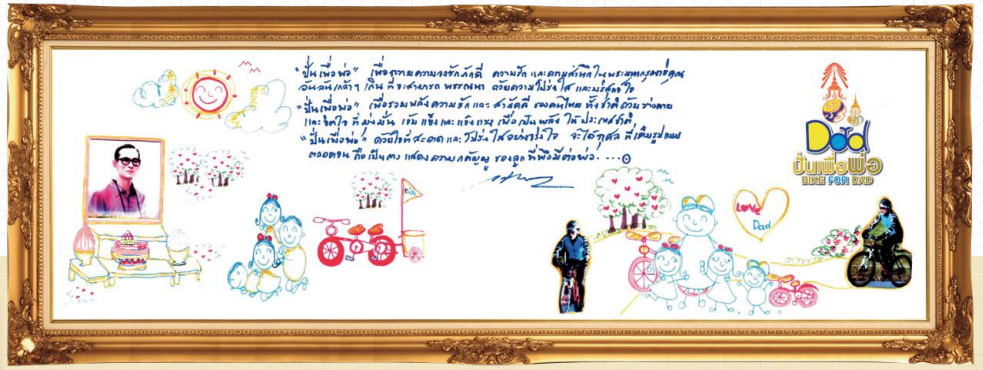 "ปั่นเพื่อพ่อ" เพื่อถวายความจงรักภักดี ความรัก และความสำนึกในพระมหากรุณาธิคุณ
อันล้นเกล้าฯ เกินที่จะสามารถ พรรณนา ด้วยความโปร่งใส และบริสุทธิ์ใจ
"ปั่นเพื่อพ่อ" เพื่อรวมพลังความรัก และ สามัคคี ของคนไทย ทั้งชาติ ด้วยร่างกาย
และจิตใจ ที่มุ่งมั่น เข้มแข็ง และแข็งแรง เพื่อเป็นพลัง ให้ประเทศชาติ
"ปั่นเพื่อพ่อ" ด้วยใจที่สะอาด และ โปร่งใสอย่างจริงใจ จะได้กุศล ที่เต็มรูปแบบ
ตลอดจน ถือเป็นการแสดงความกตัญญู ของลูก ที่พึงมีต่อพ่อ....
Love
Dad
Dad
ปั่นเพื่อพ่อ
BIKE FOR DAD